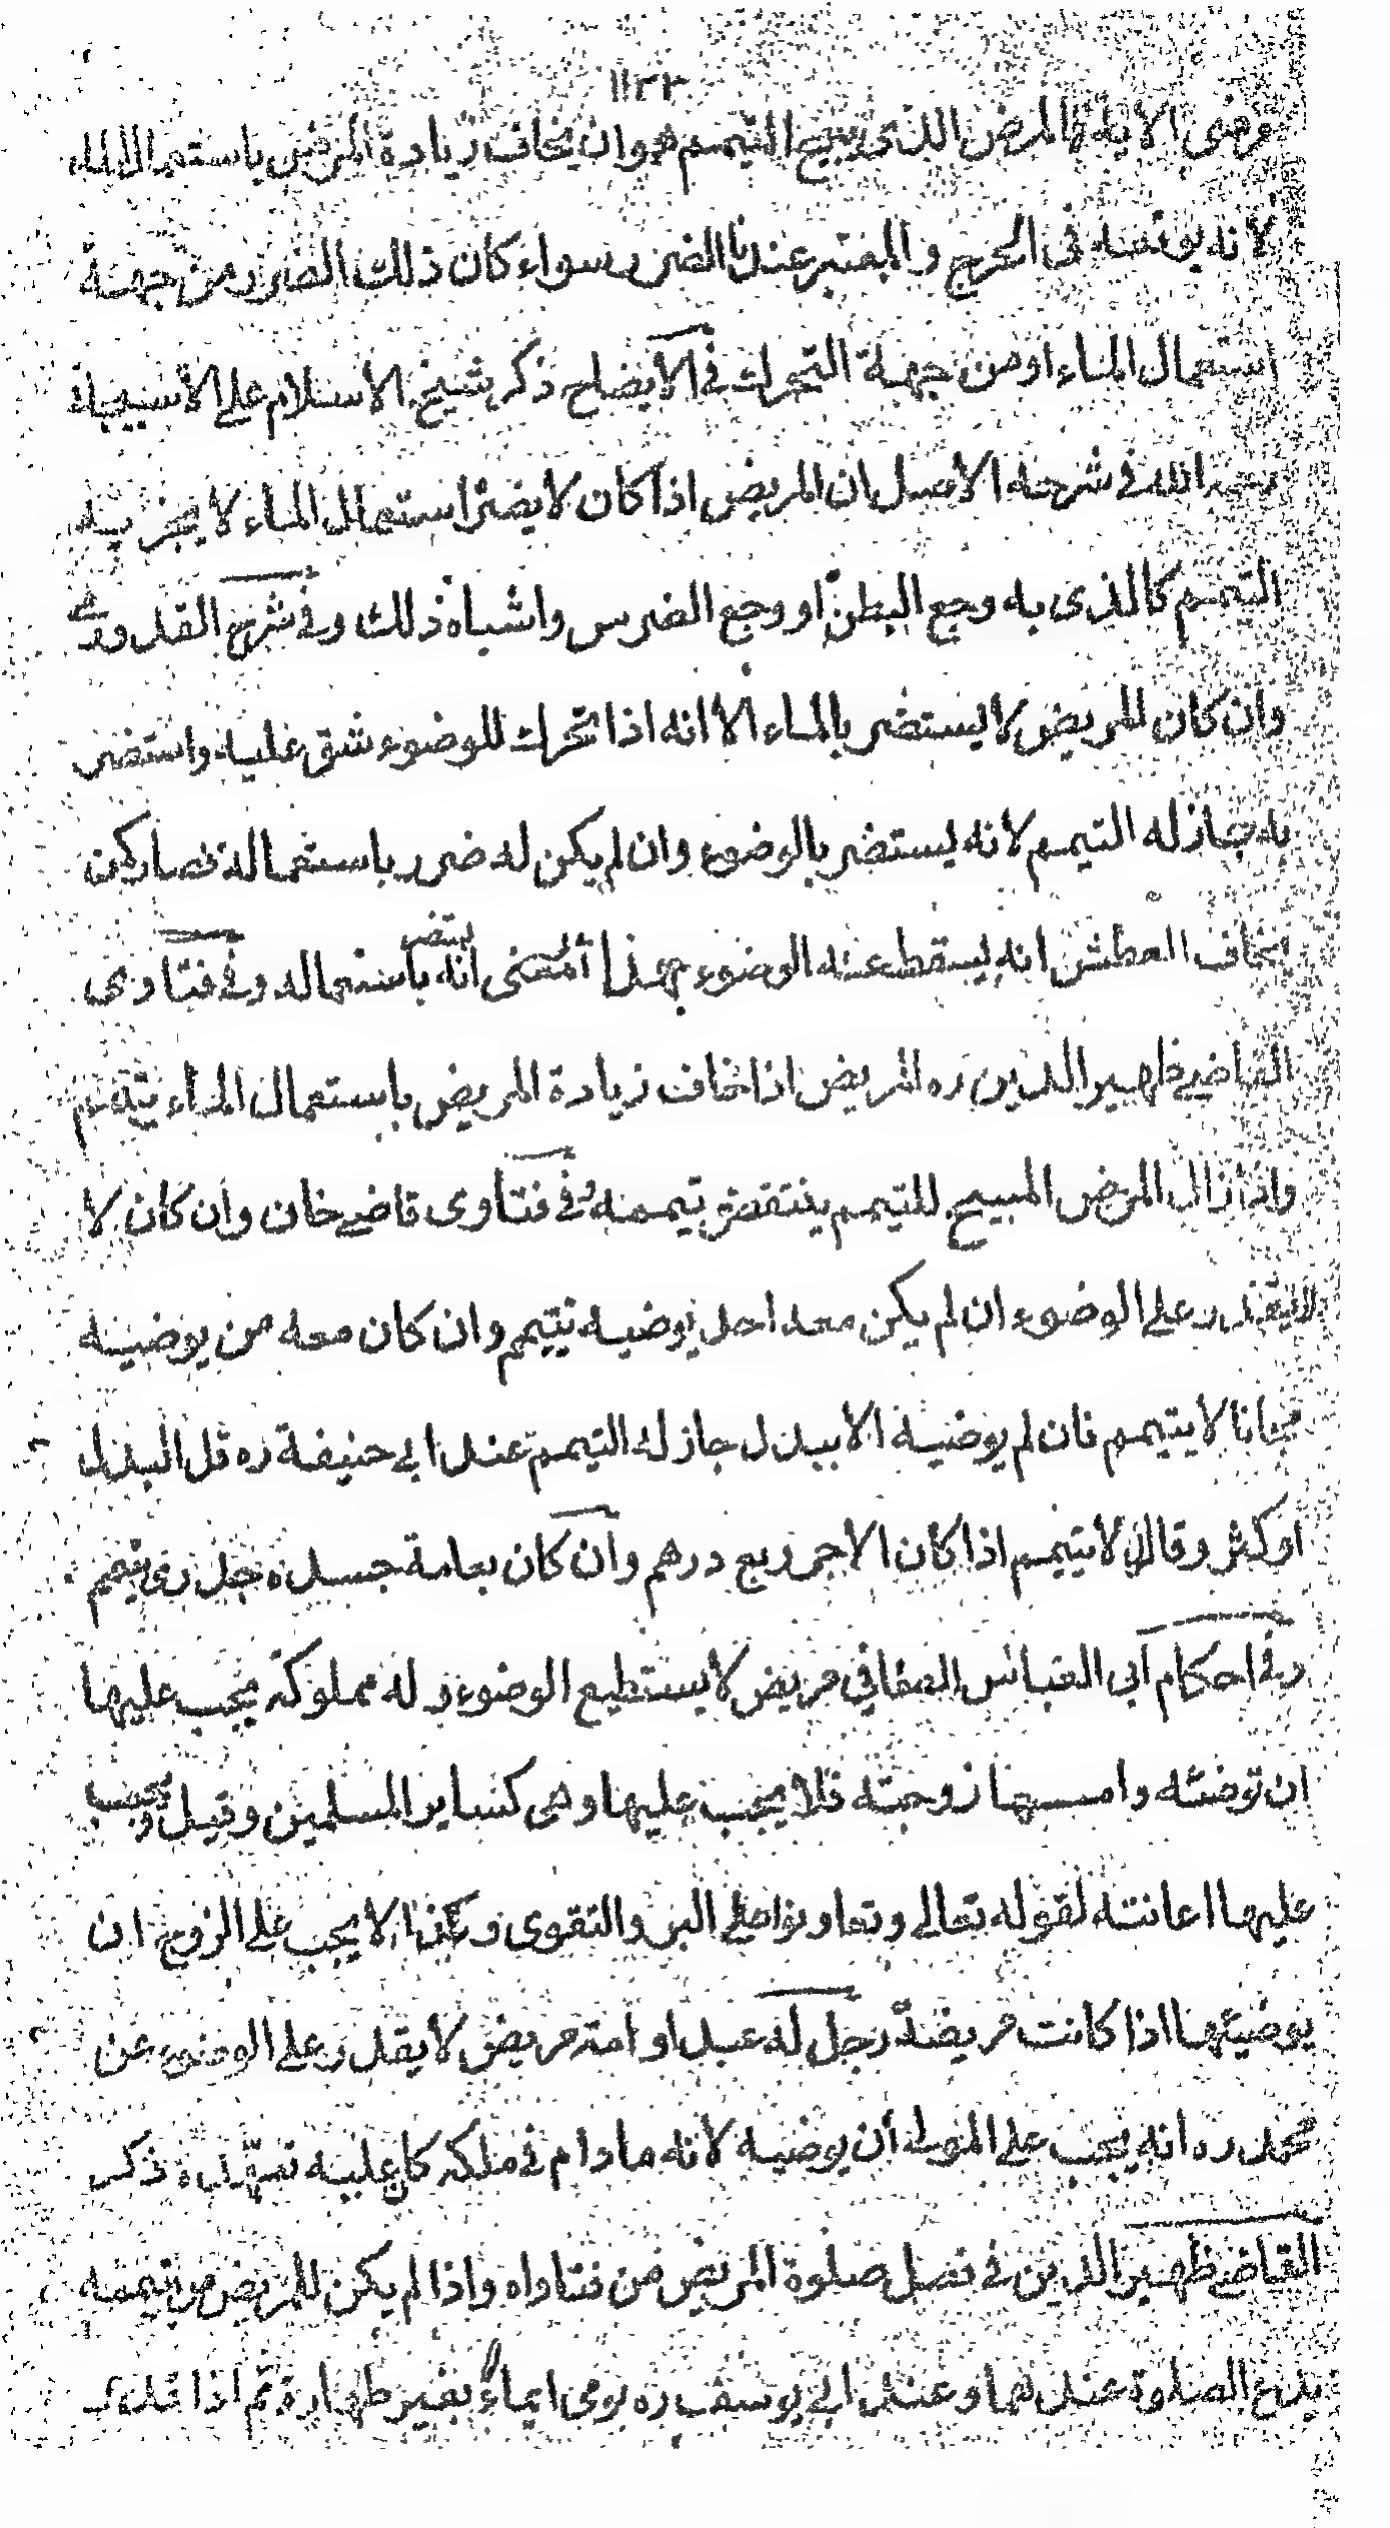 المرض الذى يبيح التيمم هو ان يخاف زيادة المرض باستعمال الماء
لانه يوقعه فى الحرج والمعتبر عندنا الضرر سواء كان ذلك الضرر من جهة
استعمال الماء او من جهة التحرك فى الايضاح ذكر شيخ الاسلام على الاسبيجابى
رحمه الله فى شرحه الاصل ان المريض اذا كان لا يضره استعمال الماء لا يجزيه
التيمم كالذى به وجع البطن او وجع الضرس واشباه ذلك وفى شرح القدورى
وان كان المريض لا يستضر بالماء الا انه اذا تحرك للوضوء شق عليه واستضر
به جاز له التيمم لانه يستضر بالوضوء وان لم يكن له ضرر باستعماله فصار كمن
يخاف العطش انه يسقط عنه الوضوء بهذا المعنى انه يستضر باستعماله وفى فتاوى
القاضى ظهير الدين ره المريض اذا خاف زيادة المريض باستعمال الماء يتيمم
واذا زال المرض المبيح للتيمم ينتقض تيممه وفى فتاوى قاضى خان وان كان لا
يقدر على الوضوء ان لم يكن معه احد يوضيه تيمم وان كان معه من يوضيه
مجانا لا يتيمم فان لم يوضيه الا ببدل جاز له التيمم عند ابى حنيفة ره قل البدل
او كثر وقالا لا يتيمم اذا كان الاجر ربع درهم وان كان بعامة جسده جدرى تيمم
وفى احكام ابى العباس مريض لا يستطيع الوضوء وله مملوكة يجب عليها
ان توضئه واما زوجته فلا يجب عليها وهى كساير المسلمين وقيل ويجب
عليها اعانته لقوله تعالى وتعاونوا على البر والتقوى وكذا لا يجب على الزوج ان
يوضيها اذا كانت مريضة رجل له عبد او امة مريض لا يقدر على الوضوء عن
محمد ره انه يجب على المولى ان يوضيه لانه مادام فى ملكه كان عليه تعهده ذكر
القاضى ظهير الدين فى فصل صلوة المريض من فتاواه واذا لم يكن للمريض من ييممه
يدع الصلوة عندهما وعند ابى يوسف ره يومى ايماء بغير طهارة ثم اذا قدر